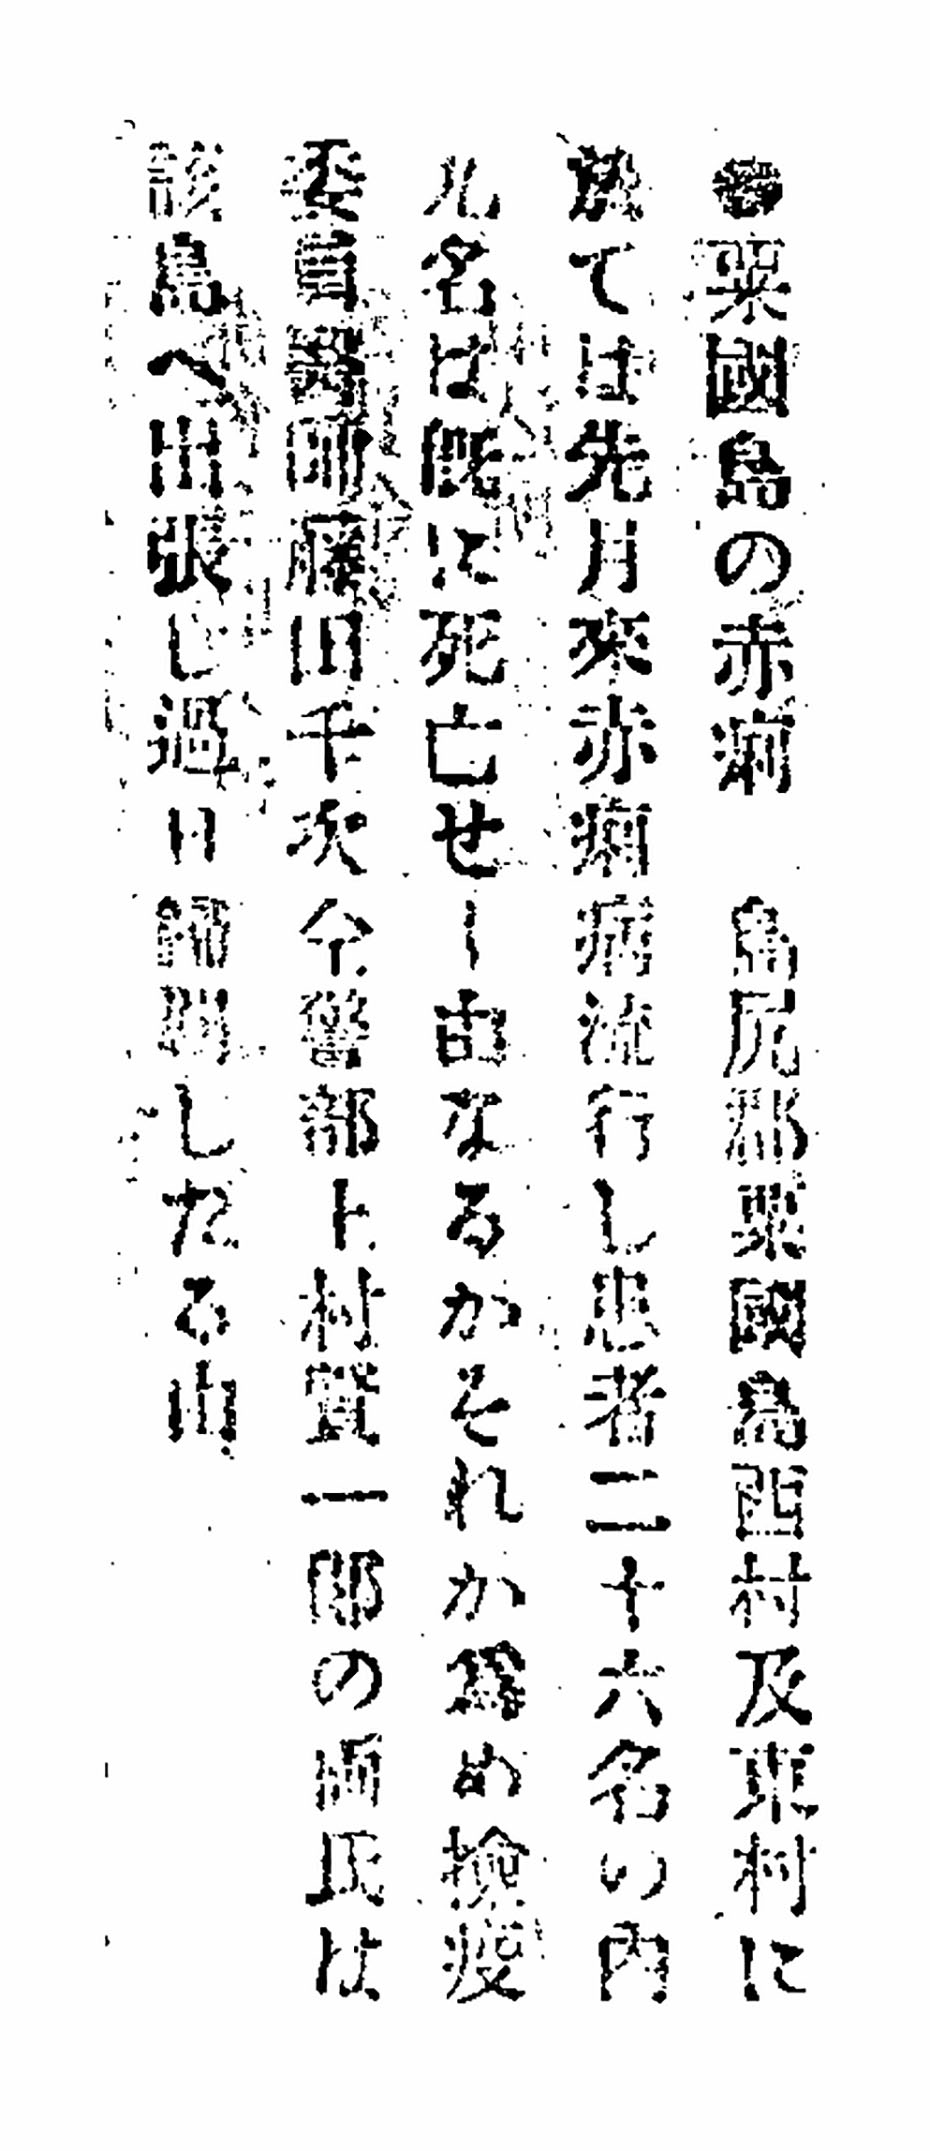 ●粟國島の赤痢　島尻郡粟國島西村及東村に
於ては先月來赤痢病流行し患者二十六名の内
九名は既に死亡せし由なるかそれか爲め檢疫
委員醫師藤田千次今警部上村賢一郎の両氏は
該島へ出張し過日歸覇したる由